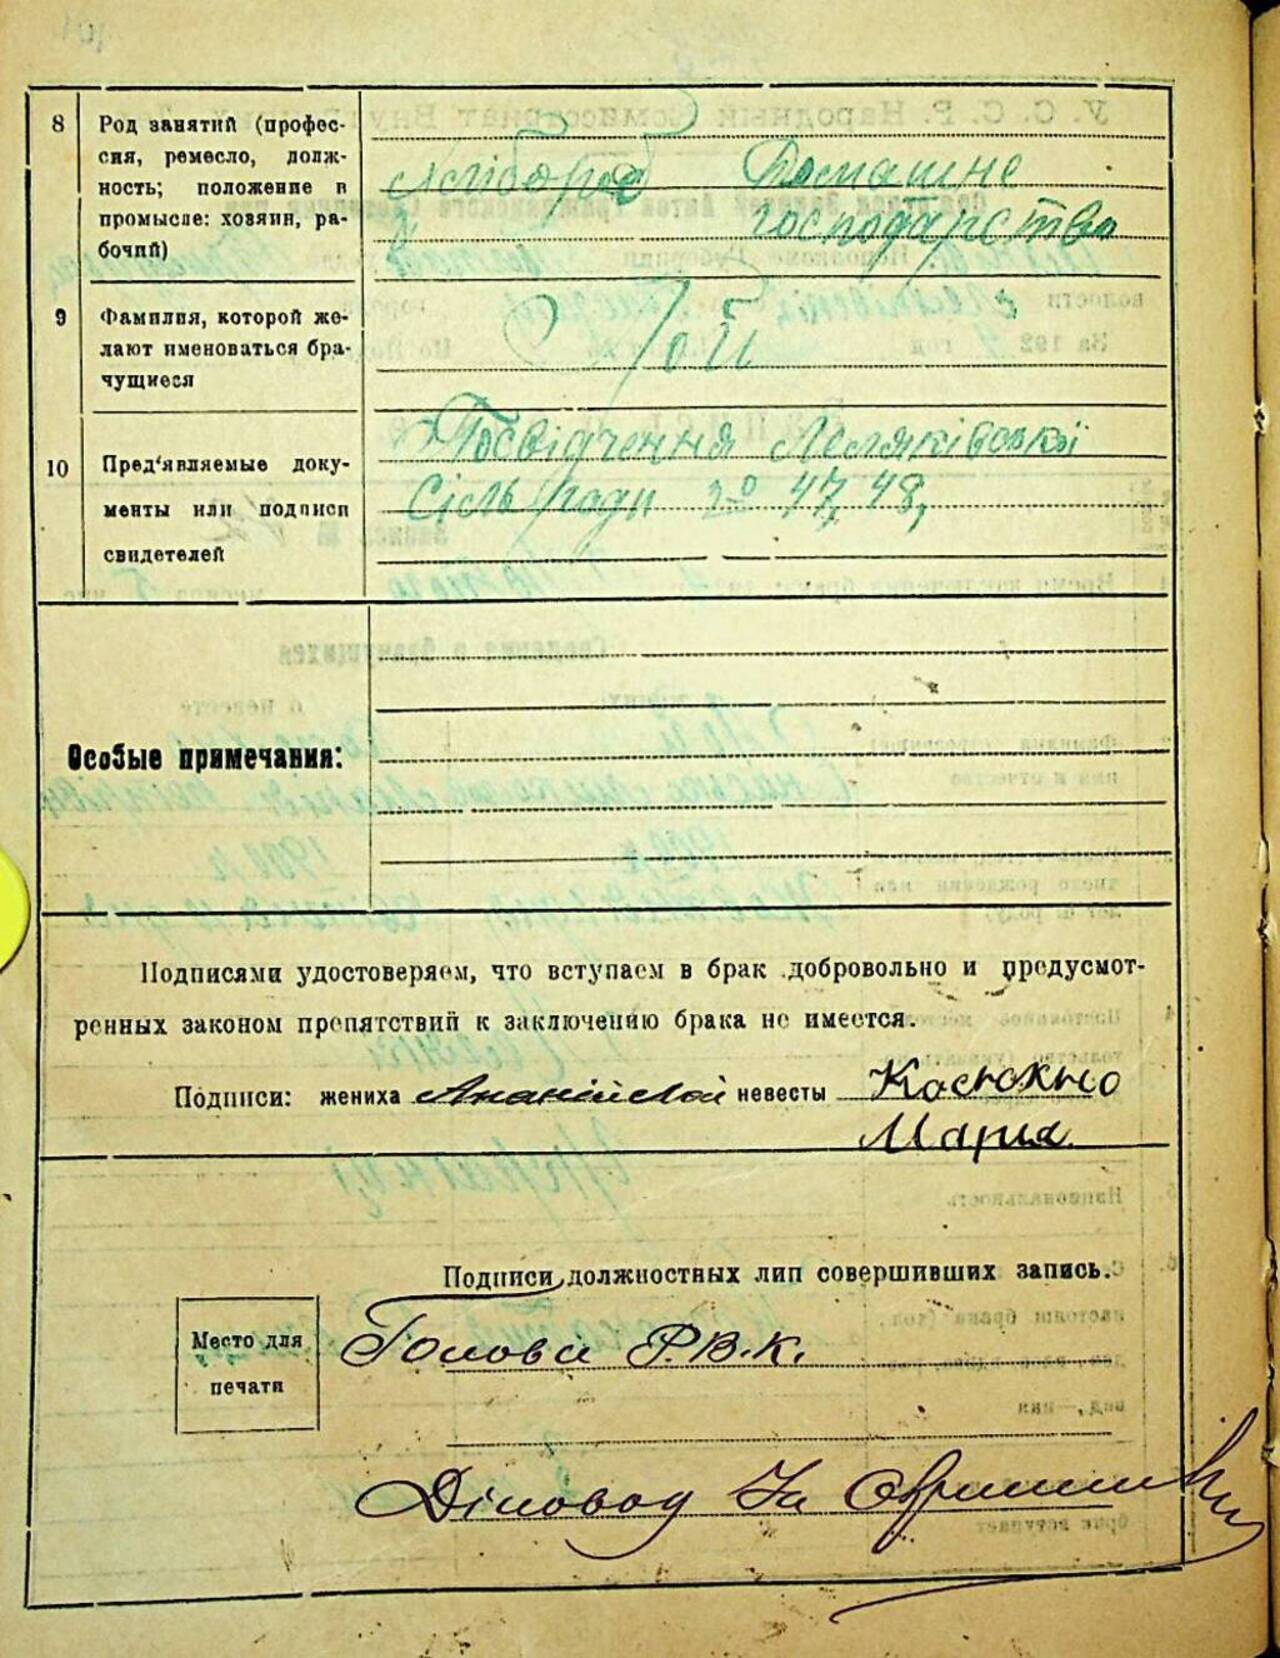 8 Род занятий (профес-
сия, ремесло, долж-
ность; положение в
промысле: хозяин, ра-
бочий)
Хлібороб Домашнє
господарство
9 Фамилия, которой же-
лают именоваться бра-
чущиеся
Лой
10 Пред'являемые доку-
менты или подписи
свидетелей
Посвідчення Леляківської
Сільради 47, 48,
Особые примечания:
Подписями удостоверяем, что вступаем в брак добровольно и предусмот-
ренных законом препятствий к заключению брака не имеется.
Подписи: жениха Ананій Лой невесты
Мария
Подписи должностных лип совершивших запись.
Место для
печати
Голова Р.В.К.
Діловод